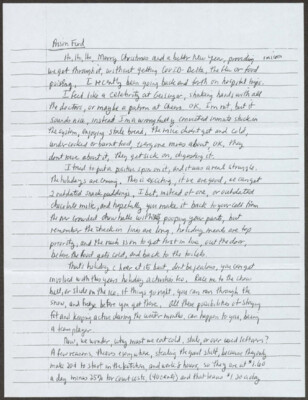 Prison Food
Ho, Ho, Ho, Merry Christmas and a better New Year, providing
we get through it, without getting Covid-Delta, the flu or food
poisoning, I recently been going back and forth on hospital trips.
I feel like a celebrity at Geisinger, shaking hands with all
the doctors, or maybe a patron at Cheers. OK, I'm not, but it
sounds nice, instead I'm a wrongfully convicted inmate stuck in
the system, enjoying stale bread, the mice didn't get and cold,
undercooked or burnt food, everyone moans about, OK, they
don't moan about it, they get sick on, digesting it.
I tried to put a positive spin on it, and it was a real struggle.
The holidays are coming. This is exciting, if we are good, we can get
2 outdated meat puddings, I bet, instead of one, or outdated
chocolate milk, and hopefully you make it back to your cell from
the over crowded chow halls without pooping your pants, but
remember the snack in lines are long, holiday meals are top
priority, and the rush is on to get first in line, out the door,
before the food gets cold, and back to the toilets.
That's holiday cheer at its best, don't be jealous, you can get
involved with this
your holiday activities too, Race me to the chow
hall, or slide on the ice, if things go right, you can run through the
snow, and before you get there. All these possibilities of staying
fit and keeping active during the winter months, can happen to you, being
a team player.
Now, we wonder why must we eat cold, stale, or over used leftovers?
A few reasons, there's everywhere, stealing the good stuff, because they only
make 20¢ to start in the kitchen, and work 8 hours, so they are at $1.60
a day minus 25% for court costs, (40 cents) and that leaves $1.20 a day,